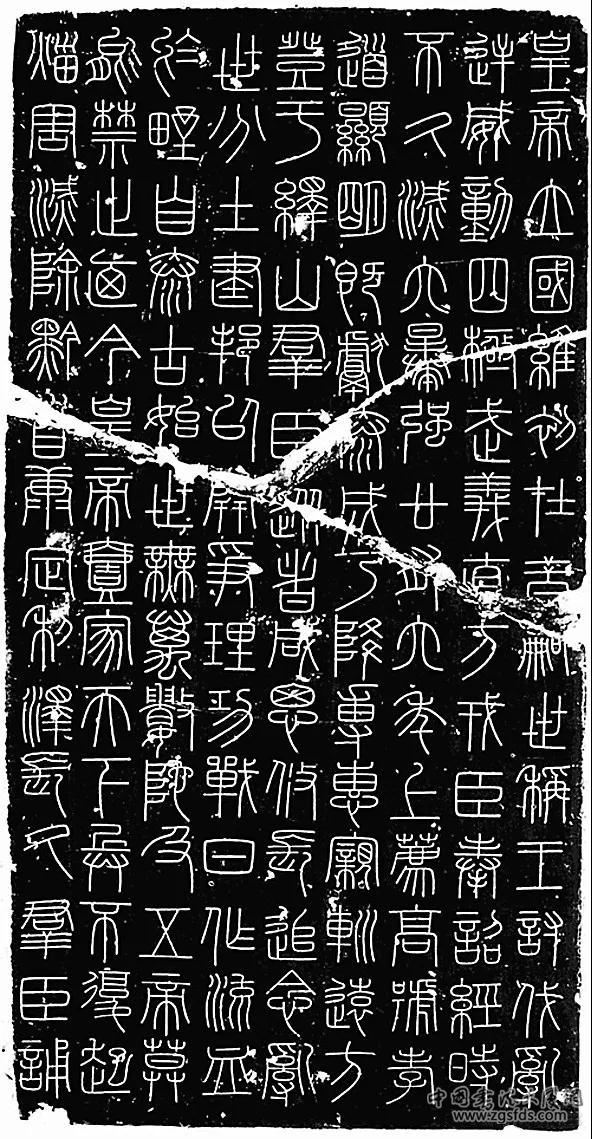 皇帝立國維初在昔嗣世稱王討伐亂
逆威動四極武義直方戎臣奉詔經時
不久滅六暴強廿有六年上薦高號孝
道顯明既獻泰成乃降專惠親巡遠方
登于繹山羣臣從者咸思攸長追念亂
世分土建邦以開爭理功戰日作流血
於野自泰古始世無萬數陀及五帝莫
能禁止廼今皇帝壹家天下兵不復起
烖害滅除黔首康定利澤長久羣臣誦
www.zgsfds.com